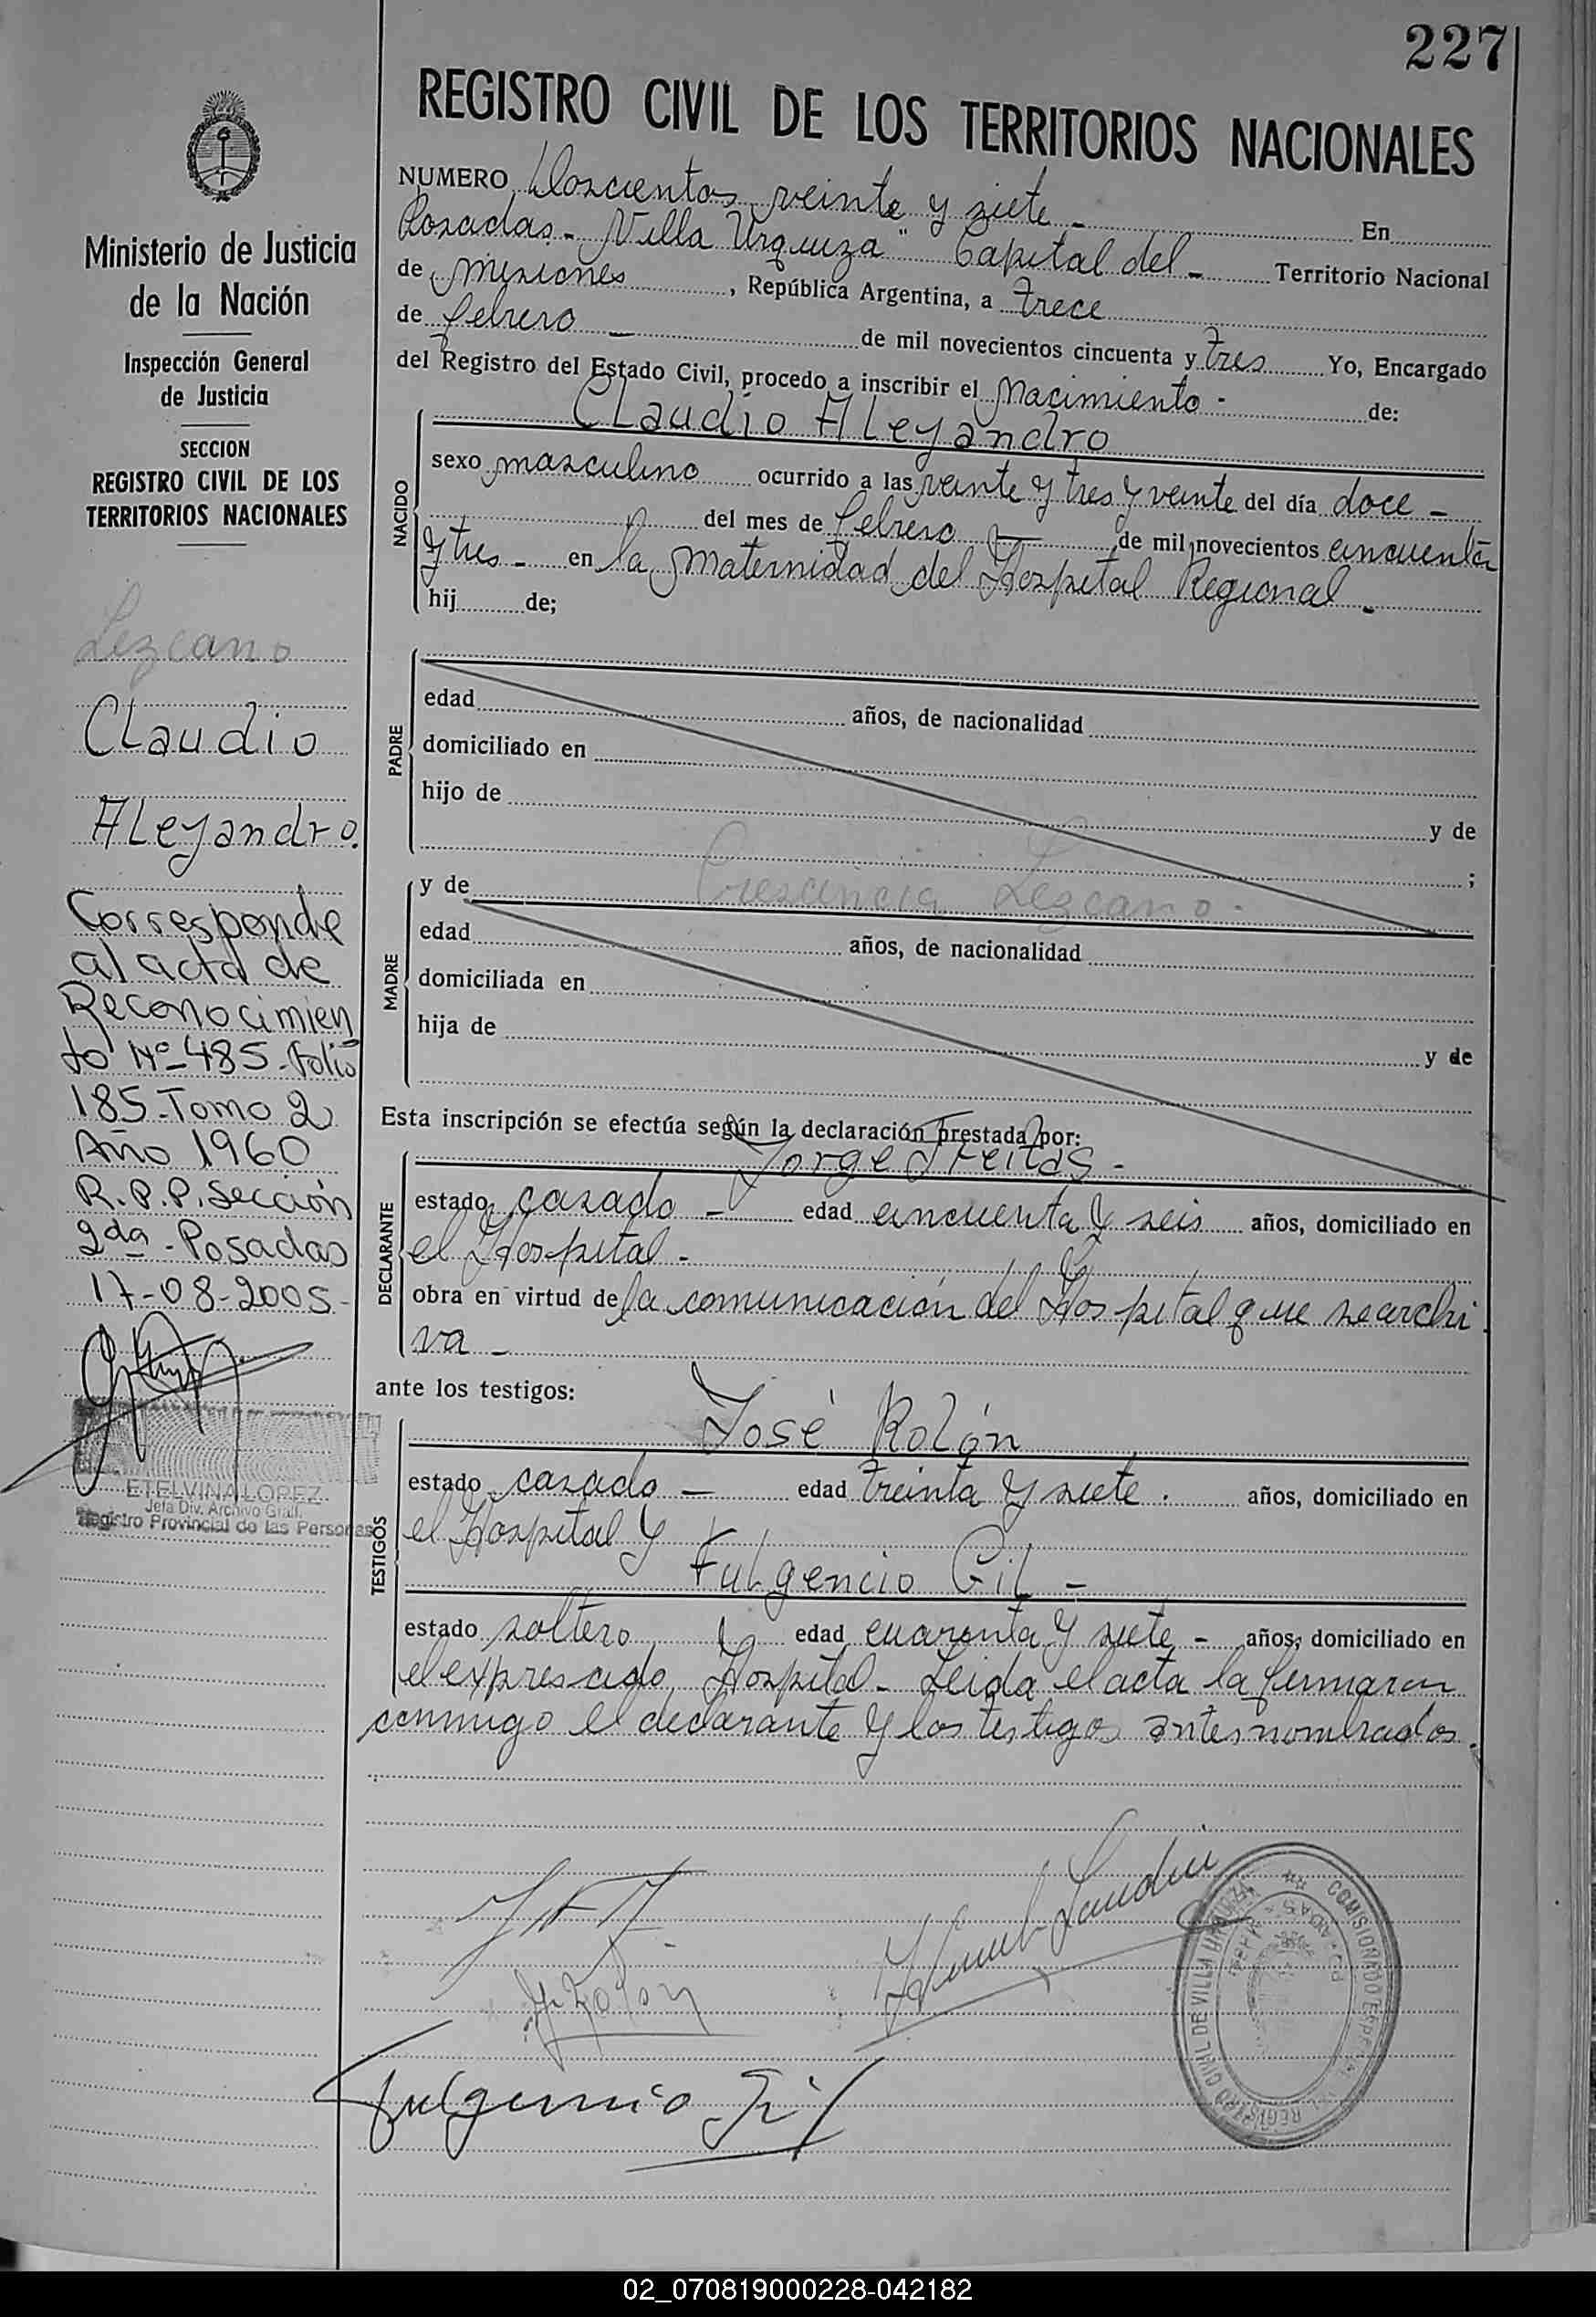 227
REGISTRO CIVIL DE LOS TERRITORIOS NACIONALES
NUMERO Doscientos veinte y siete - En
Posadas - "Villa Urquiza" Capital del - Territorio Nacional
de Misiones, República Argentina, a trece
de febrero - de mil novecientos cincuenta y tres Yo, Encargado
del Registro del Estado Civil, procedo a inscribir el Nacimiento - de:
Claudio Alejandro
NACIDO
sexo masculino ocurrido a las veinte y tres y veinte del día doce -
del mes de febrero - de mil novecientos cincuenta
y tres - en la Maternidad del Hospital Regional -
hij de;
PADRE
edad años, de nacionalidad
domiciliado en
hijo de
y de
;
MADRE
y de Crescencia Lezcano -
edad años, de nacionalidad
domiciliada en
hija de
y de
Esta inscripción se efectúa según la declaración prestada por:
Jorge Freitas -
DECLARANTE
estado casado - edad cincuenta y seis años, domiciliado en
el Hospital - y
obra en virtud de la comunicación del Hospital que se archi
va -
ante los testigos:
José Rolón
TESTIGOS
estado casado - edad treinta y siete - años, domiciliado en
el Hospital y
Fulgencio Gil -
estado soltero, y edad cuarenta y siete - años, domiciliado en
el expresado Hospital - Leida el acta la firmaron
conmigo el declarante y los testigos antes nombrados.
Fulgencio Gil
COMISIONADO ESPECIAL
REGISTRO CIVIL DE VILLA URQUIZA
POSADAS
Ministerio de Justicia
de la Nación
Inspección General
de Justicia
SECCION
REGISTRO CIVIL DE LOS
TERRITORIOS NACIONALES
Lezcano
Claudio
Alejandro.
Corresponde
al acta de
Reconocimien
to Nº 485 - Folio
185 - Tomo 2
Año 1960
R.P.P. Sección
2da - Posadas
17-08-2005 -
ETELVINA LOPEZ
Jefa Div. Archivo Gral.
Registro Provincial de las Personas
02_070819000228-042182